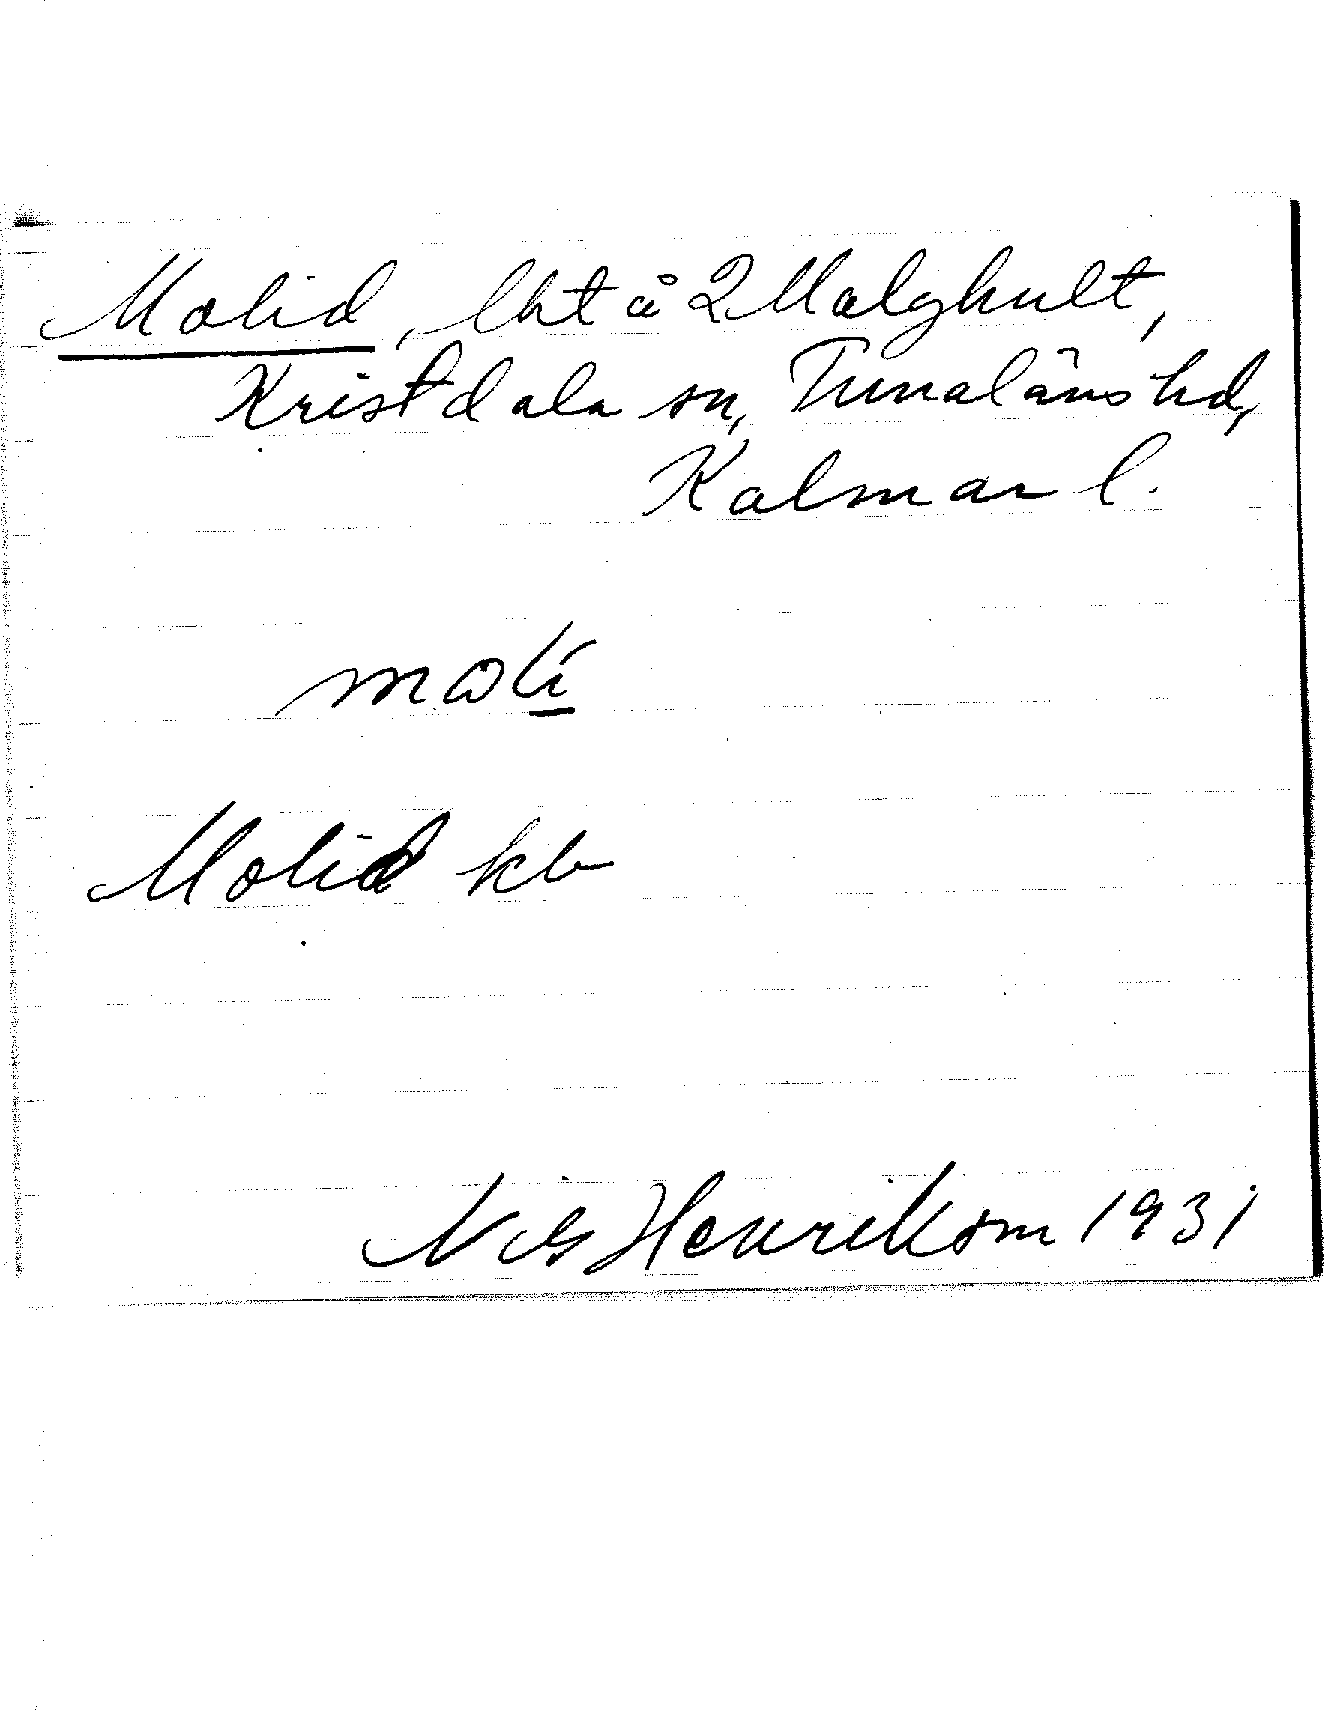 Molid, lht å 2 Malghult,
Kristdala sn, Tunaläns hd,
Kalmar l.
moli
Molid kb
Nils Henrikson 1931